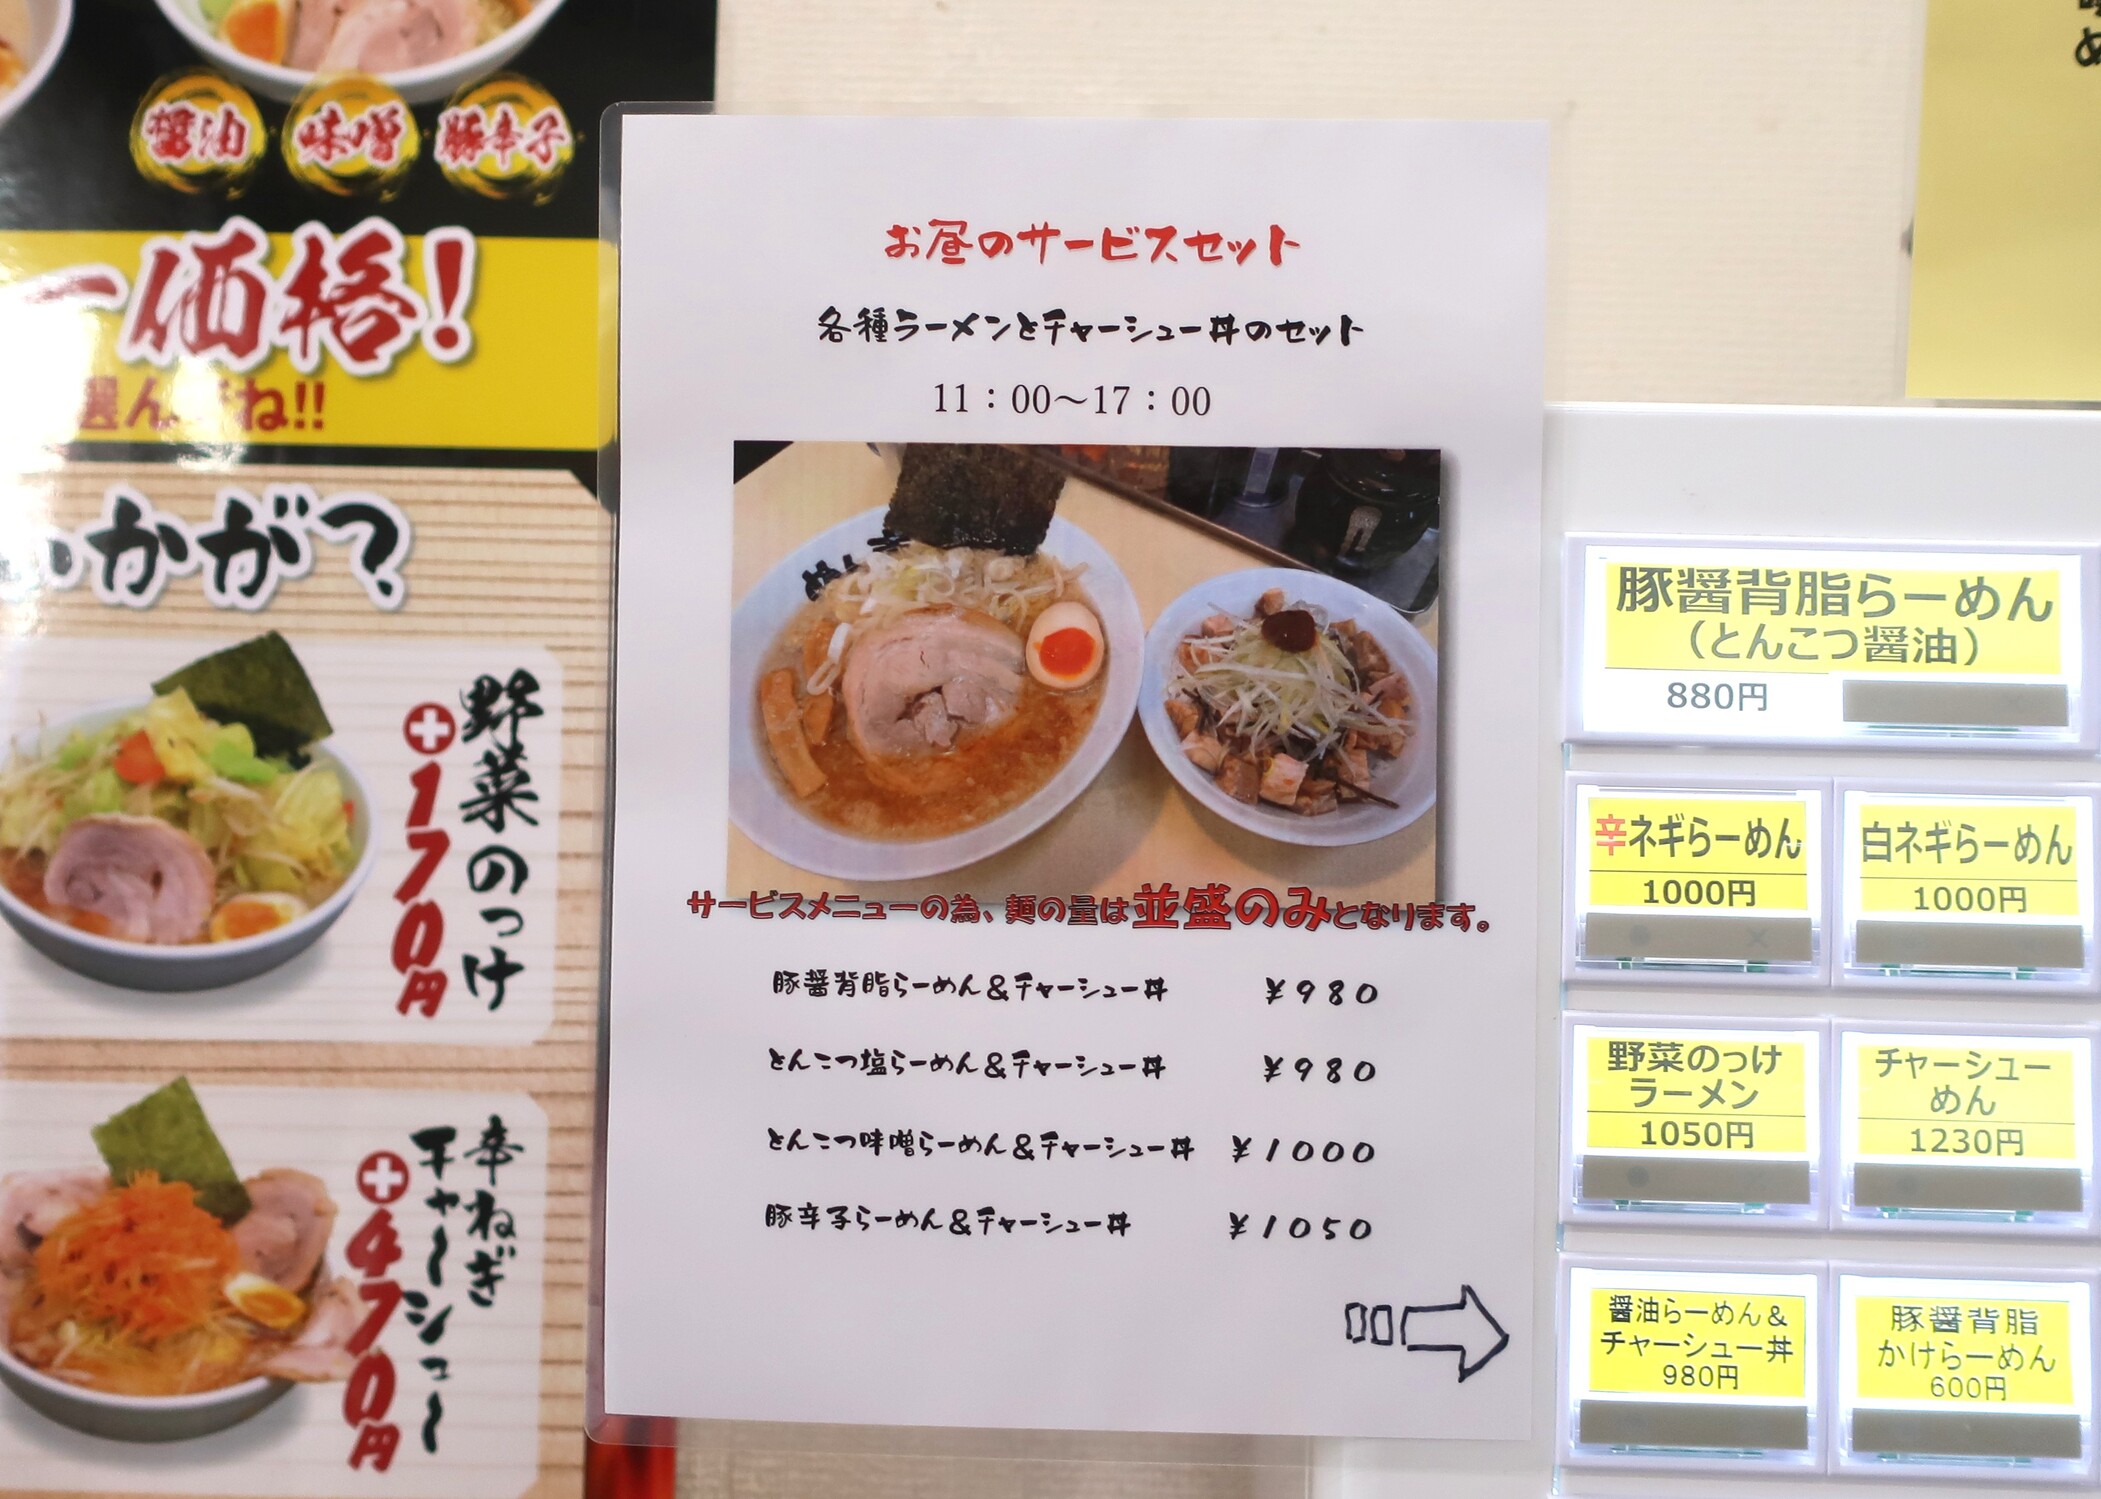 醤油
味噌
豚辛子
一価格!
選んでね!!
かが?
野菜のっけ
+170円
辛ねぎ
チャーシュー
+470円
お昼のサービスセット
各種ラーメンとチャーシュー丼のセット
11:00~17:00
サービスメニューの為、麺の量は並盛のみとなります。
豚醤背脂らーめん&チャーシュー丼 ¥980
とんこつ塩らーめん&チャーシュー丼 ¥980
とんこつ味噌らーめん&チャーシュー丼 ¥1000
豚辛子らーめん&チャーシュー丼 ¥1050
豚醤背脂らーめん
(とんこつ醤油)
880円
辛ネギらーめん
1000円
白ネギらーめん
1000円
野菜のっけ
ラーメン
1050円
チャーシュー
めん
1230円
醤油らーめん&
チャーシュー丼
980円
豚醤背脂
かけらーめん
600円